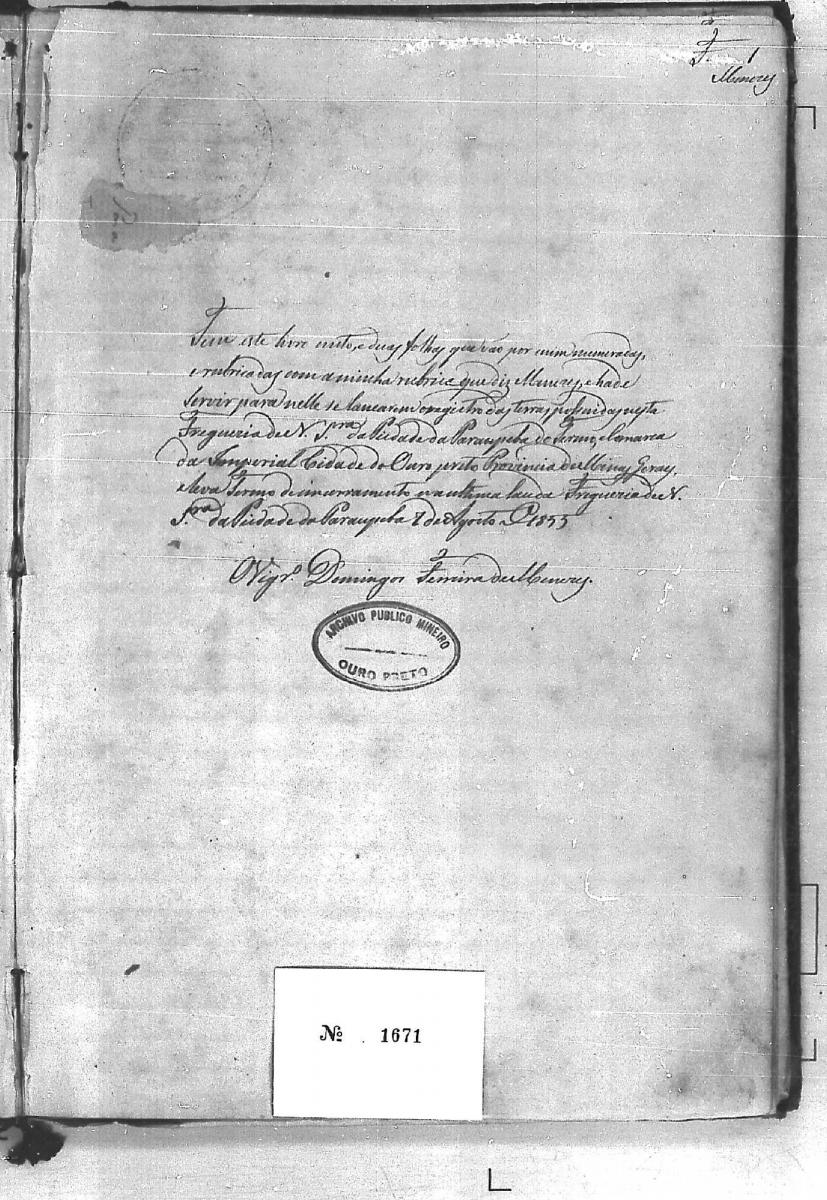 F. 1
Menezes
Tem este livro cento, e duas folhas que vão por mim numeradas,
e rubricadas com a minha rubrica que diz Menezes, e hade
servir para nelle se lancarem o registro das terras possuidas nesta
Freguezia de N. S.ra da Piedade da Paraupeba do Termo, e Comarca
da Imperial Cidade do Ouro preto Provincia de Minas Geraes,
e leva Termo de incerramento na ultima lauda Freguezia de N.
S.ra da Piedade da Paraupeba de Agosto de 1855
O Vigr.o Domingos Ferreira de Menezes.
ARCHIVO PUBLICO MINEIRO
OURO PRETO
№ 1671